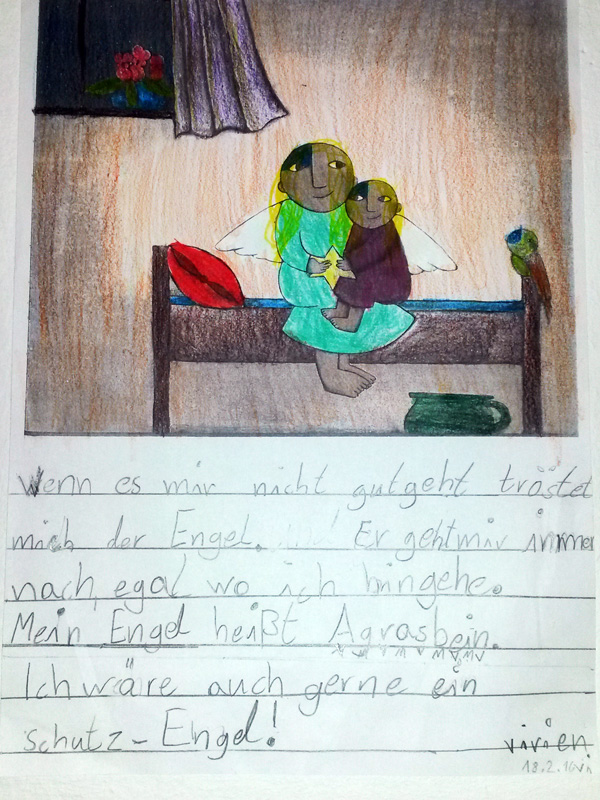 Wenn es mir nicht gutgeht tröstet
mich der Engel. Er gehtmir immer
nach, egal wo ich hingehe.
Mein Engel heißt Agrasbein.
Ich wäre auch gerne ein
schutz-Engel!
vivien
18.2.16